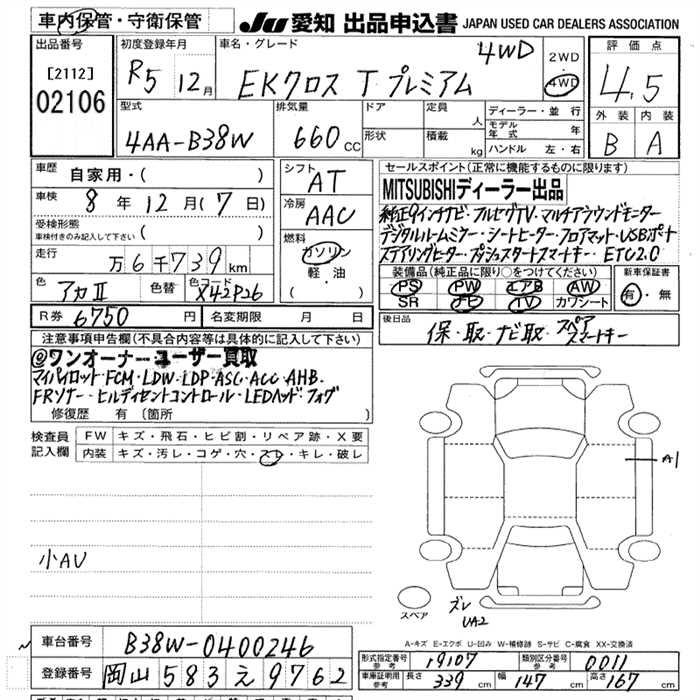 車内保管・守衛保管
JU 愛知 出品申込書 JAPAN USED CAR DEALERS ASSOCIATION
出品番号
[2112]
02106
初度登録年月
R5 12月
車名・グレード
4WD
EKクロス T プレミアム
2WD
4WD
評価点
4.5
外装 内装
B A
型式
4AA-B38W
排気量
660 CC
ドア
形状
定員 人
積載 kg
ディーラー・並行
モデル年式 年
ハンドル 左・右
車歴 自家用・( )
車検 8年12月(7日)
受検形態
車検付きのみ記入して下さい ( )
走行 万6千739km
色 アカⅡ 色替 色コード X42P26
シフト AT
冷房 AAC
燃料 ガソリン
軽・油
( )
セールスポイント(正常に機能するものに限ります)
MITSUBISHIディーラー出品
純正9インチナビ・フルセグTV・マルチアラウンドモニター
デジタルルームミラー・シートヒーター・フロアマット・USBポート
ステアリングヒーター・プッシュスタートスマートキー・ETC2.0
装備品(純正品に限り○をつけてください)
PS PW エアB AW
SR ナビ TV カワシート
新車保証書
有・無
R券 6750円 名変期限 月 日
後日品 保・取・ナビ取・スペアスマートキー
注意事項申告欄(不具合内容等は具体的に記入して下さい)
@ワンオーナー ユーザー買取
マイパイロット・FCM・LDW・LDP・ASC・ACC・AHB
FRソナー・ヒルディセントコントロール・LEDヘッド・フォグ
修復歴 有 (箇所 )
検査員記入欄
FW キズ・飛石・ヒビ割・リペア跡・X要
内装 キズ・汚レ・コゲ・穴・スレ・キレ・破レ
小AU
A1
スペア
ズレ
UA2
A-キズ E-エクボ U-凹み W-補修跡 S-サビ C-腐食 XX-交換済
車台番号 B38W-0400246
登録番号 岡山 583 え 9762
形式指定番号 参考 19107 類別区分番号 参考 0011
車庫証明用 参考 長さ 339 cm 幅 147 cm 高さ 167 cm